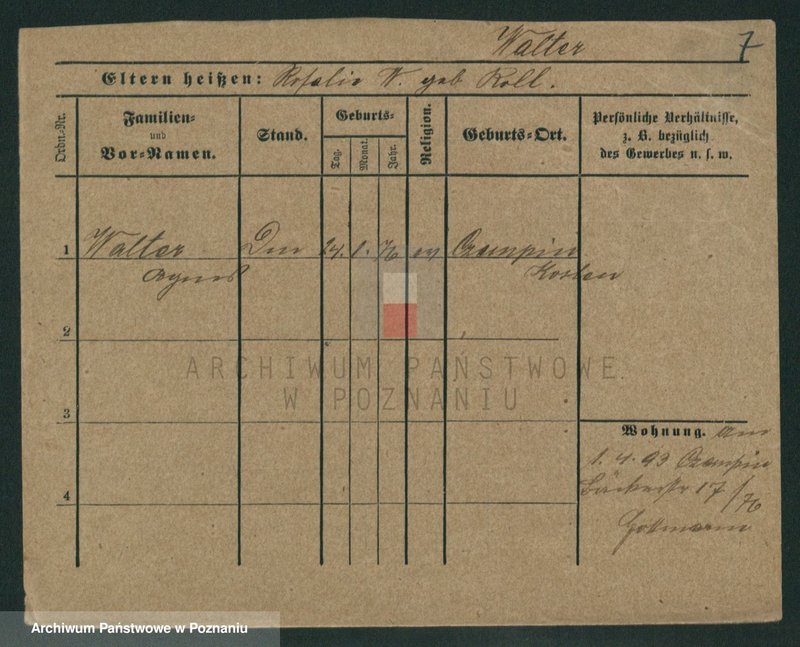 Walter 7
Eltern heißen: Rosalie W. geb Roll.
Ordn.-Nr.
Familien-
und
Vor-Namen.
Stand.
Geburts-
Tag.
Monat.
Jahr.
Religion.
Geburts-Ort.
Persönliche Verhältnisse,
z. B. bezüglich
des Gewerbes u. s. w.
1 Walter 24. 8. 76 ev Czempin
Agnes Kosten
2
3
4
Wohnung.
1. 4. 93 Czempin
Bäckerstr 17/76
ARCHIWUM PAŃSTWOWE
W POZNANIU
Archiwum Państwowe w Poznaniu